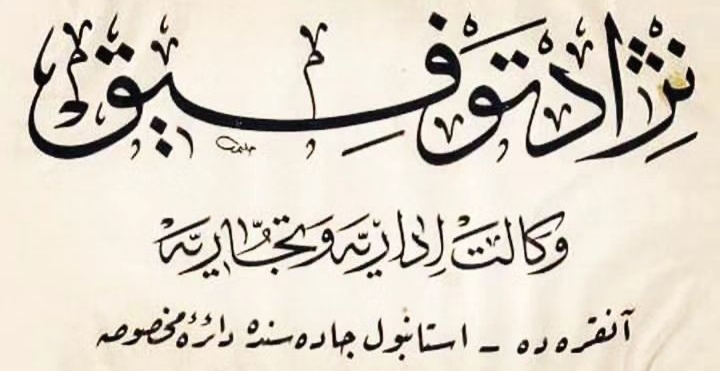 نژاد توفيق
وكالت اداريه و تجاريه
آنقره ده - استانبول جاده سنده دائرۀ مخصوصه